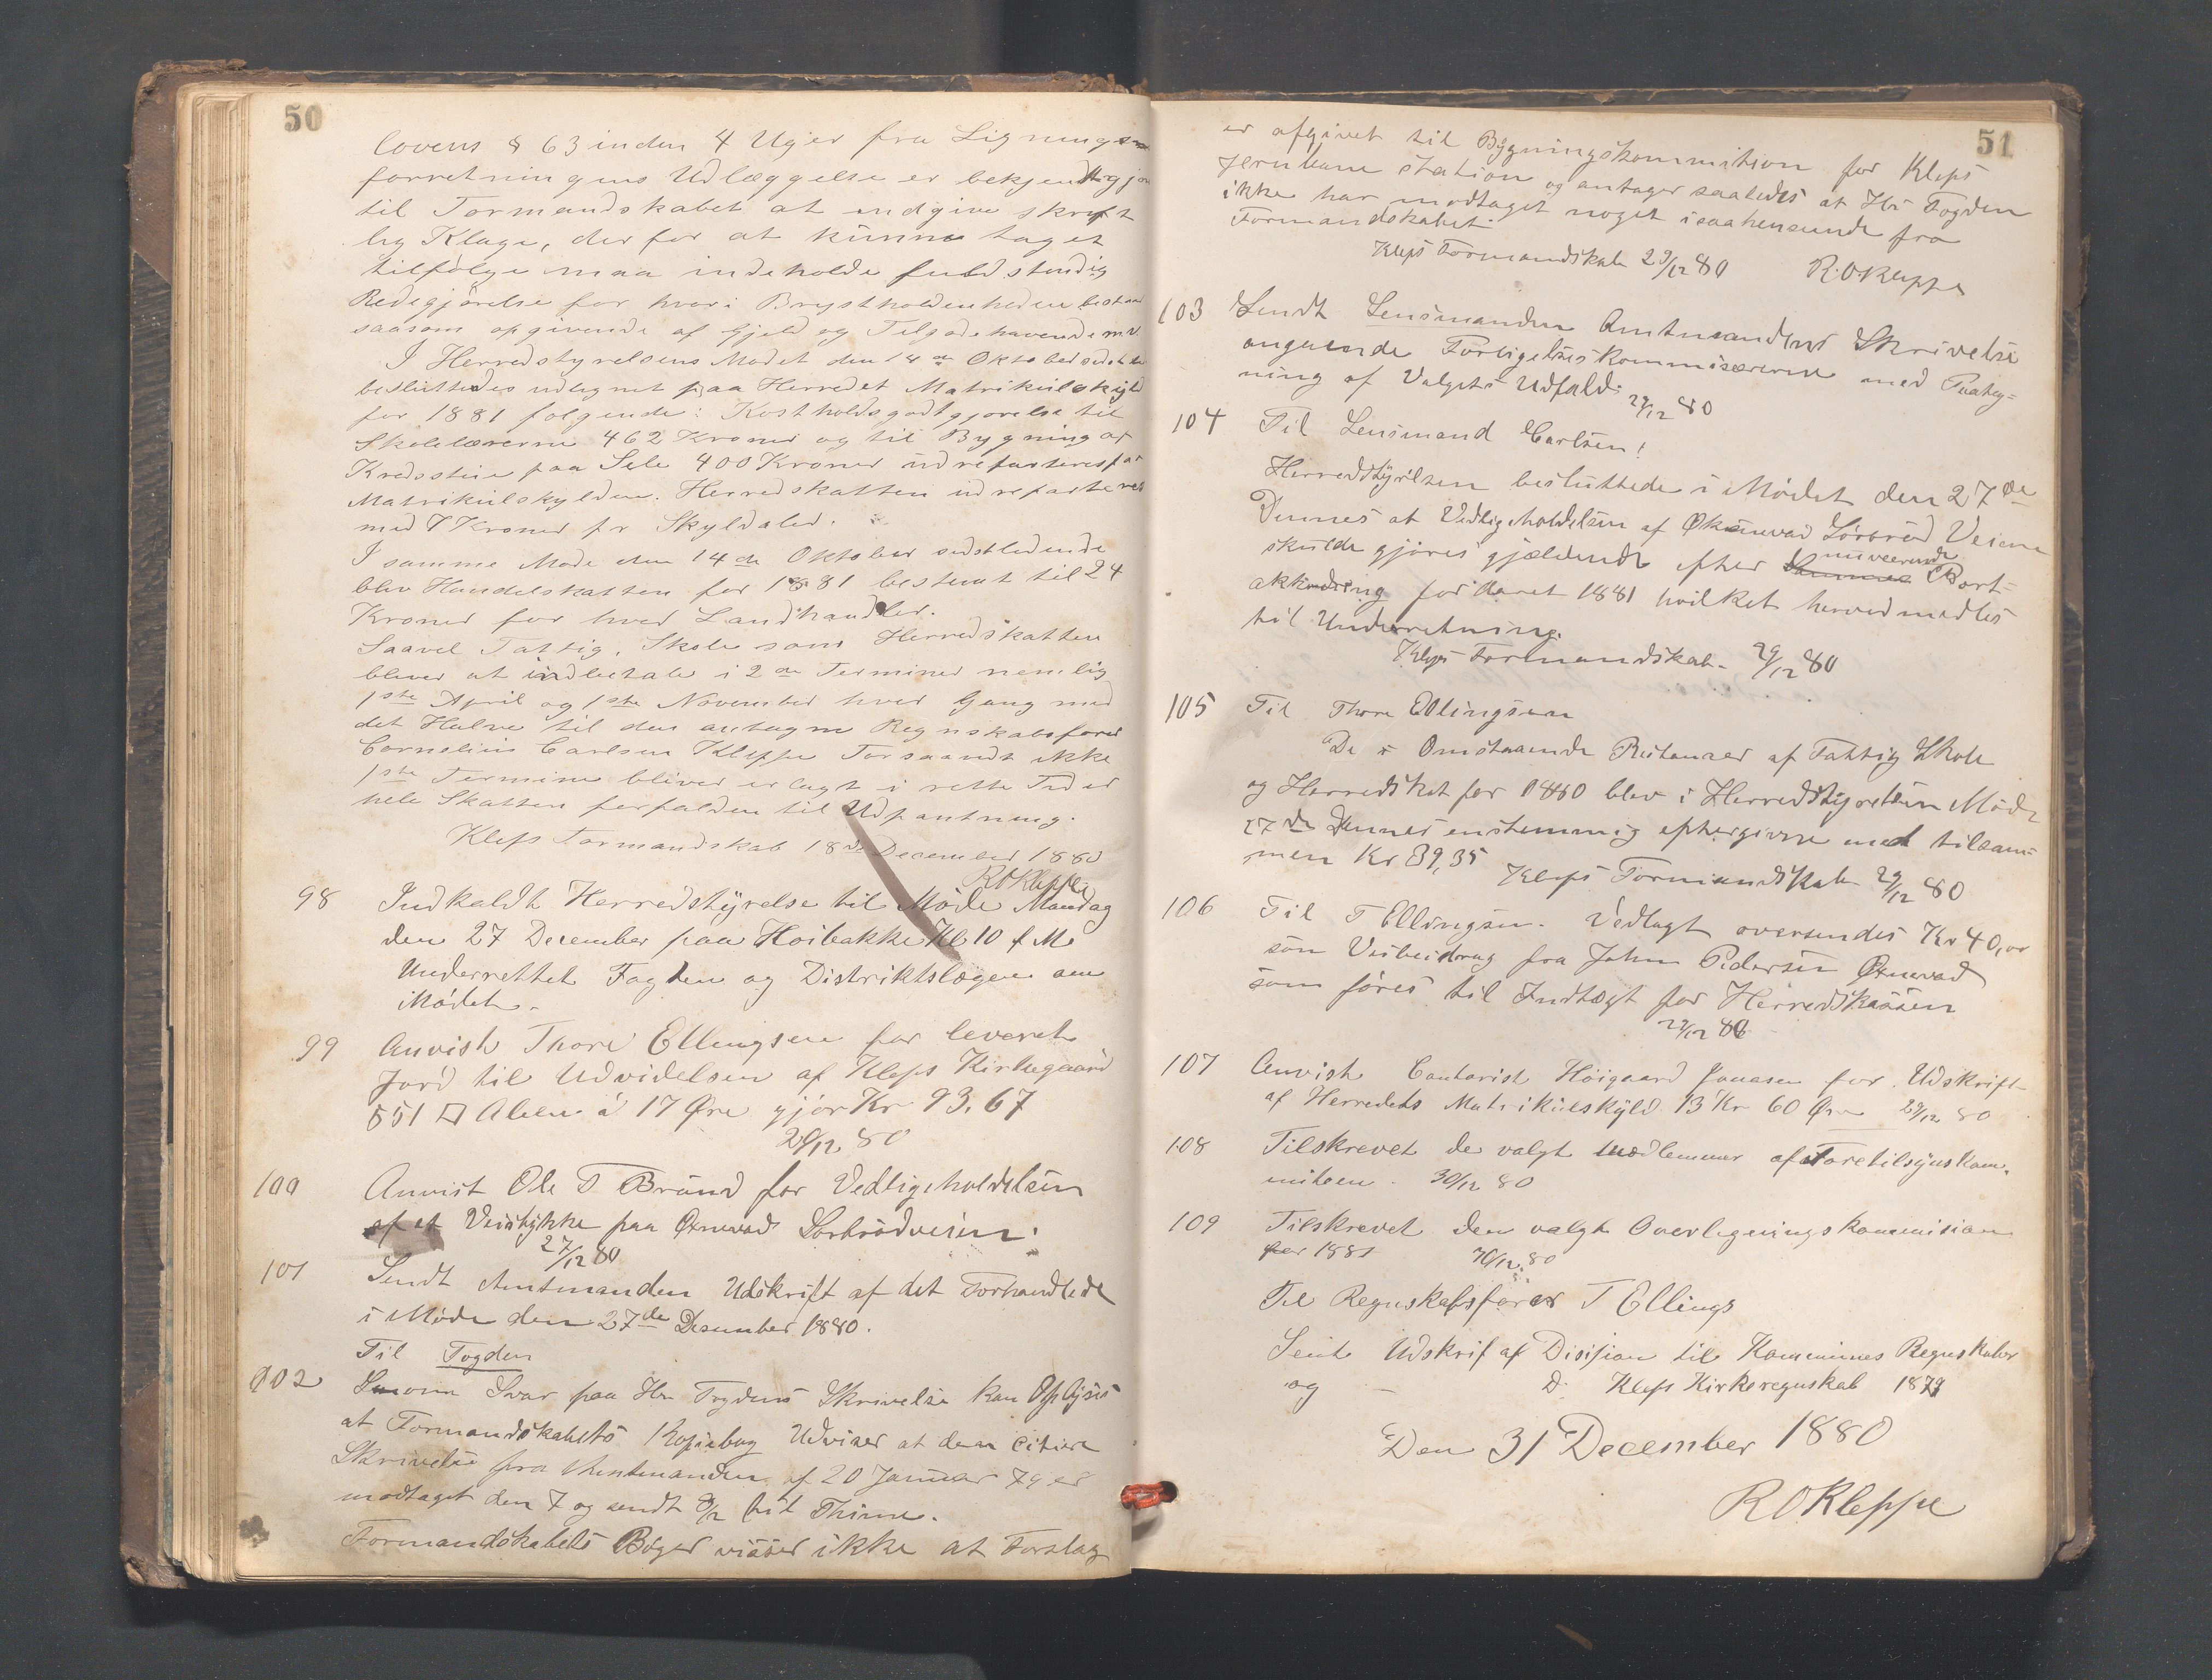 50
lovens § 63 inden 4 Uger fra Lignings
forretningens Udlæggelse er bekjendtgjor
til Formandskabet at indgive skrift
lig Klage, der for at kunne taget
tilfølge maa indeholde fuldstendig
Redegjørelse for hvori Brystholdenheden bestaar
saasom opgivende af Gjeld og Tilgodehavende m v
I Herredstyrelsens Mødet den 14de Oktober sidstl
besluttedes udlignet paa Herredet Matrikulskyld
for 1881 følgende: Kostholdsgodtgjørelse til
Skolelærerne 462 Kroner og til Bygning af
Kredsstue paa Sele 400 Kroner udrepasteres paa
Matrikulskylden. Herredskatten udreparteres
med 7 Kroner pr Skyldaler.
I samme Møde den 14de Oktober sidstledende
blev Handelskatten for 1881 bestemt til 24
Kroner for hver Landhandler.
Saavel Fattig, Skole som Herredskatten
bliver at indbetale i 2de Terminer nemlig
1ste April og 1ste November hver Gang med
det Halve til den antagne Regnskabsfører
Cornelius Carlsen Kleppe Forsaavidt ikke
1ste Termine bliver erlagt i rette Tid er
hele Skatten forfalden til Udpantning.
Kleps Formandskab 18de December 1880
R O Kleppe
98 Indkaldt Herredstyrelse til Møde Mandag
den 27 December paa Hoibakke Kl 10 f M.
Underrettet Fogden og Distriktslægen om
Mødet.
99 Anvist Thore Ellingsen for leveret
Jord til Udvidelsen af Kleps Kirkegaard
551 □ Alen á 17 Øre gjør Kr 93.67
29/12 80
100 Anvist Ole T Braud for Vedligeholdelsen
af et Veistykke paa Øxnevad Sørbrødveien.
27/12 80
101 Sendt Amtmanden Udskrift af det Forhandlede
i Møde den 27de Desember 1880.
Til Fogden
102 Som Svar paa Hr Fogdens Skrivelse kan Oplyses
at Formandskabets Kopiebog Udviser at den citiere
Skrivelse fra Amtmanden af 20 Januar 79 er
modtaget den 7 og sendt 8/2 til Thime.
Formandskabets Bøger visser ikke at Forslag
51
er afgivet til Bygningskommition for Kleps
Jernbane station og antager saaledes at Hr Fogden
ikke har modtaget noget isaahenseende fra
Formandskabet.
Kleps Formandskab 29/12 80 R.O.Kleppe
103 Sendt Lensmanden Amtmandens Skrivelse
angaaende Forligelseskommisærerne med Paateg=
ning af Valgets Udfald. 29/12 80
104 Til Lensmand Carlsen!
Herredstyrelsen besluttede i Mødet den 27de
Dennes at Vedligeholdelsen af Øksnevad Sørbrød Veiene
skulde gjøres gjældende efter nuveerende Bort=
akkordring for Aaret 1881 hvilket herved medles
til Underretning.
Kleps Formandskab. 29/12 80
105 Til Thore Ellingsen
De i Omstaaende Restanser af Fattig Skole
og Herredskat for 1880 blev i Herredstyrelsen Møde
27de Dennes enstemmig eftergivne med tilsam=
men Kr 39,35 Kleps Formandskab 29/12 80
106 Til T Ellingsen. Vedlagt oversendes Kr 40,00
som Veibeidrag fra John Pedersen Øxnevad
som føres til Indtægt for Herredskassen
29/12 80
107 Anvist Contorist Høigaard Jonasen for Udskrift
af Herredets Matrikulskyld 13 Kr 60 Øre 29/12 80
108 Tilskrevet de valgt Medlemmer af Faretilsynskom.
miteen. 30/12 80
109 Tilskrevet den valgt Overlegningskommision
for 1881 30/12 80
Til Regnskabsfører T Ellings
Sent Udskrif af Disisjon til Kommunes Regnskaber
og — Do Kleps Kirkeregnskab 1879
Den 31 December 1880
R O Kleppe